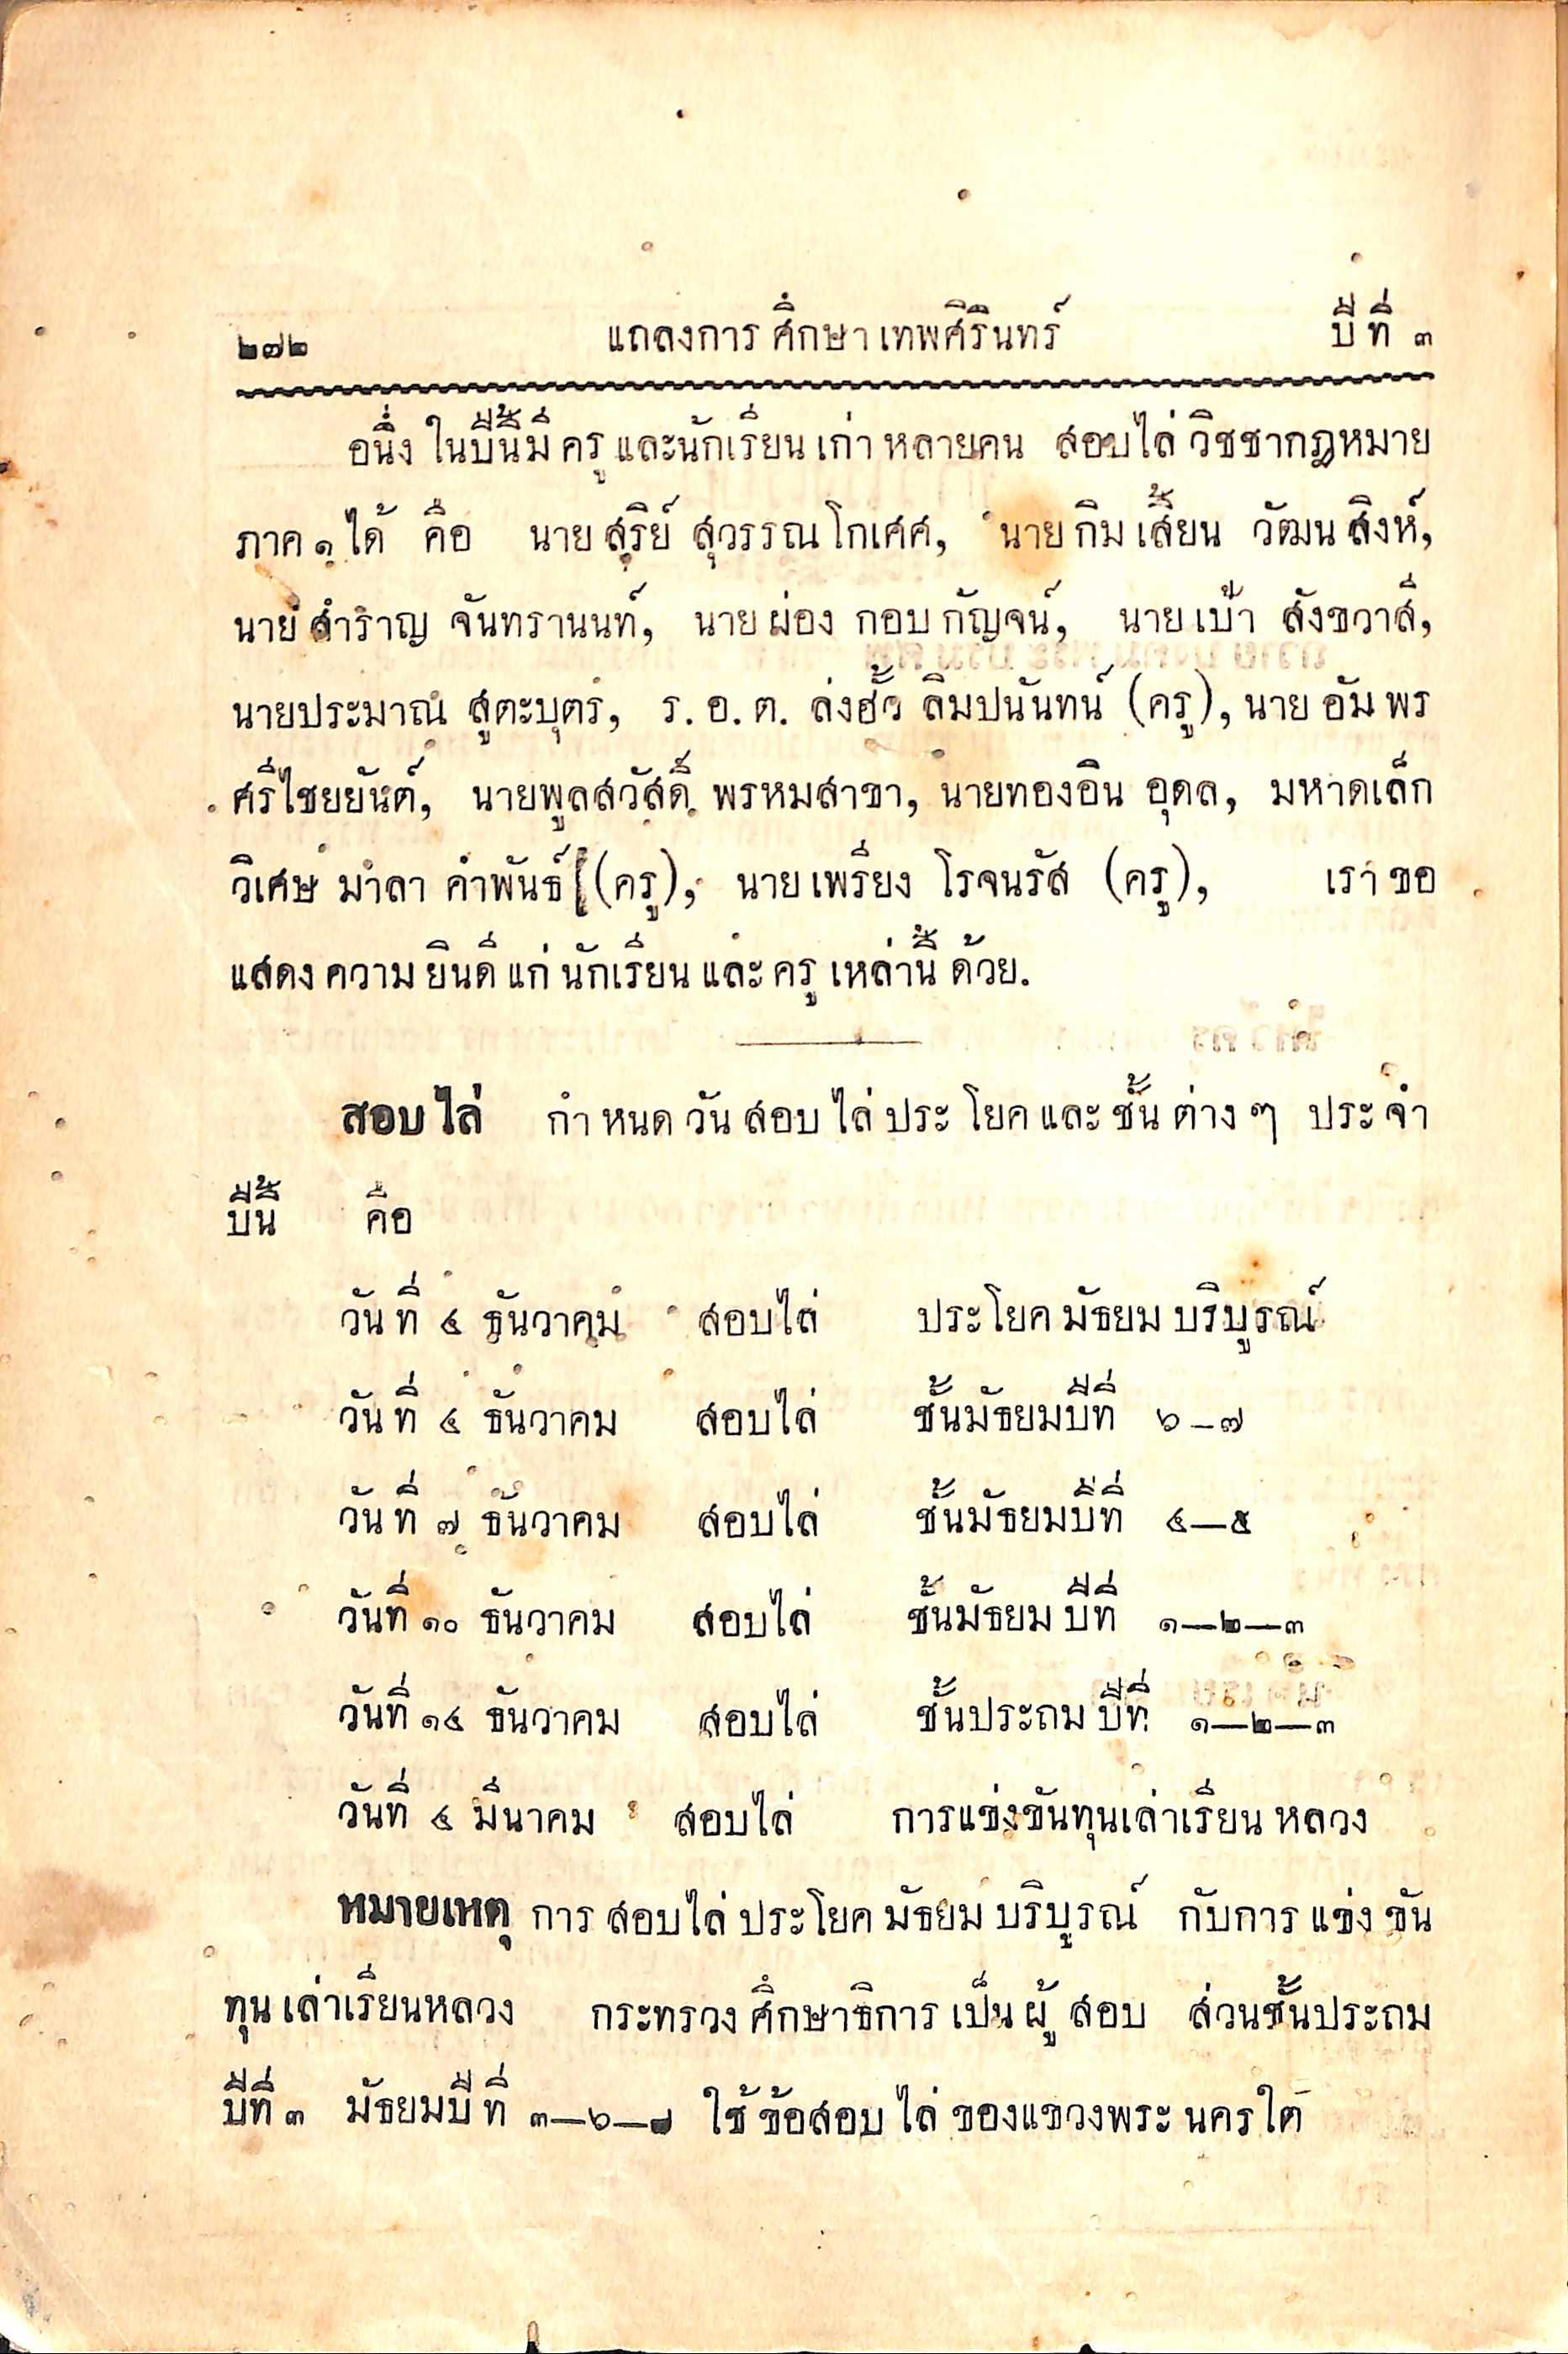 ๒๗๒ แถลงการศึกษาเทพศิรินทร์ ปีที่ ๓
อนึ่ง ในปีนี้มีครูและนักเรียนเก่าหลายคน สอบไล่วิชชากฎหมาย
ภาค ๑ ได้ คือ นายสุริย์ สุวรรณโกเศศ, นายกิมเสี้ยน วัฒนสิงห์,
นายสำราญ จันทรานนท์, นายผ่อง กอบกัญจน์, นายเป้า สังขวาสี,
นายประมาณ สูตะบุตร, ร. อ. ต. ล่งฮั้ว ลิมปนันทน์ (ครู), นายอัมพร
ศรีไชยยันต์, นายพูลสวัสดิ์ พรหมสาขา, นายทองอิน อุดล, มหาดเล็ก
วิเศษ มาลา คำพันธ์ (ครู), นายเพรียง โรจนรัส (ครู), เราขอ
แสดงความยินดีแก่นักเรียนและครูเหล่านี้ด้วย.
สอบไล่ กำหนดวันสอบไล่ประโยคและชั้นต่าง ๆ ประจำ
ปีนี้ คือ
วันที่ ๔ ธันวาคม สอบไล่ ประโยคมัธยมบริบูรณ์
วันที่ ๔ ธันวาคม สอบไล่ ชั้นมัธยมปีที่ ๖—๗
วันที่ ๗ ธันวาคม สอบไล่ ชั้นมัธยมปีที่ ๔—๕
วันที่ ๑๐ ธันวาคม สอบไล่ ชั้นมัธยมปีที่ ๑—๒—๓
วันที่ ๑๔ ธันวาคม สอบไล่ ชั้นประถมปีที่ ๑—๒—๓
วันที่ ๔ มีนาคม สอบไล่ การแข่งขันทุนเล่าเรียนหลวง
หมายเหตุ การสอบไล่ประโยคมัธยมบริบูรณ์ กับการแข่งขัน
ทุนเล่าเรียนหลวง กระทรวงศึกษาธิการเป็นผู้สอบ ส่วนชั้นประถม
ปีที่ ๓ มัธยมปีที่ ๓—๖—๗ ใช้ข้อสอบไล่ของแขวงพระนครใต้